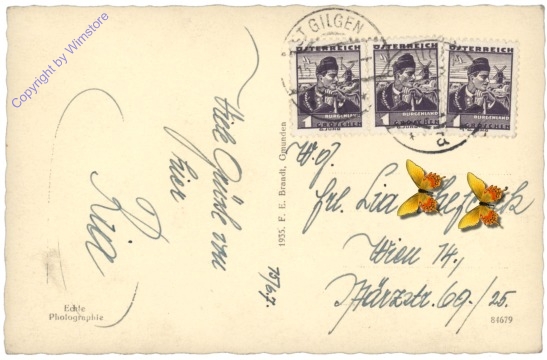 Copyright by Wimstore
ST GILGEN
ÖSTERREICH ÖSTERREICH ÖSTERREICH
BURGENLAND BURGENLAND BURGENLAND
1 GROSCHEN 1 GROSCHEN 1 GROSCHEN
Viele Grüsse von
hier
Echte
Photographie
1935. F. E. Brandt, Gmunden
Frl. Lia
Wien 14.,
Märzstr. 69./25.
84679